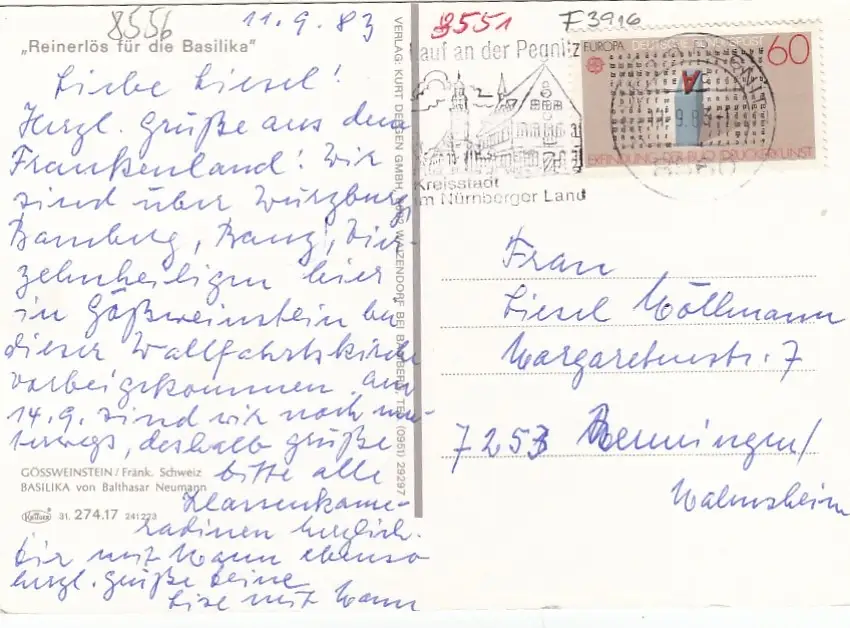 8556
11.9.83
„Reinerlös für die Basilika“
Liebe Liesel!
Herzl. Grüße aus dem
Frankenland! Wir
sind über Würzburg,
Bamberg, Banz, Vier-
zehnheiligen hier
in Gößweinstein bei
dieser Wallfahrtskirche
vorbeigekommen. Am
14.9. sind wir noch un-
terwegs, deshalb grüße
bitte alle
Klassenkame-
radinnen herzlich.
Dir mit Mann ebenso
herzl. Grüße Deine
Lise mit Mann
GÖSSWEINSTEIN / Fränk. Schweiz
BASILIKA von Balthasar Neumann
31. 274.17 241223
VERLAG: KURT GMBH, WAIZENDORF BEI BAMBERG, TEL. (0951) 29297
8551
F3916
Lauf an der Pegnitz
Kreisstadt
im Nürnberger Land
EUROPA DEUTSCHE BUNDESPOST 60
A
9.83
ERFINDUNG DER BUCHDRUCKERKUNST
Frau
Liesel Möllmann
Margaretenstr. 7
7253 Renningen/
Malmsheim